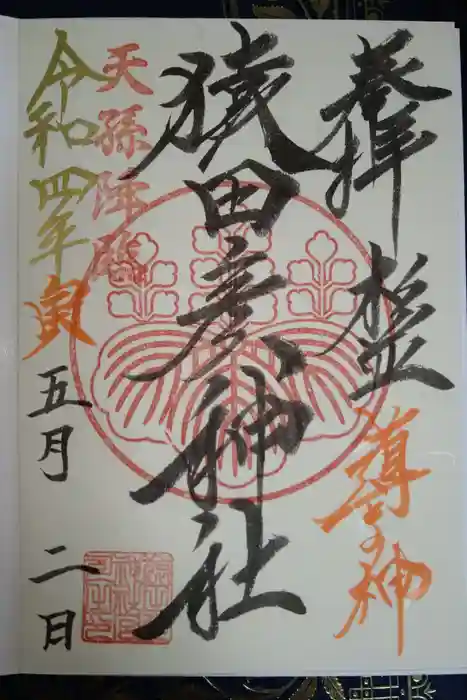 奉拝
杉並
導の神
猿田彦神社
天孫降臨
令和四年
寅
五月 二日